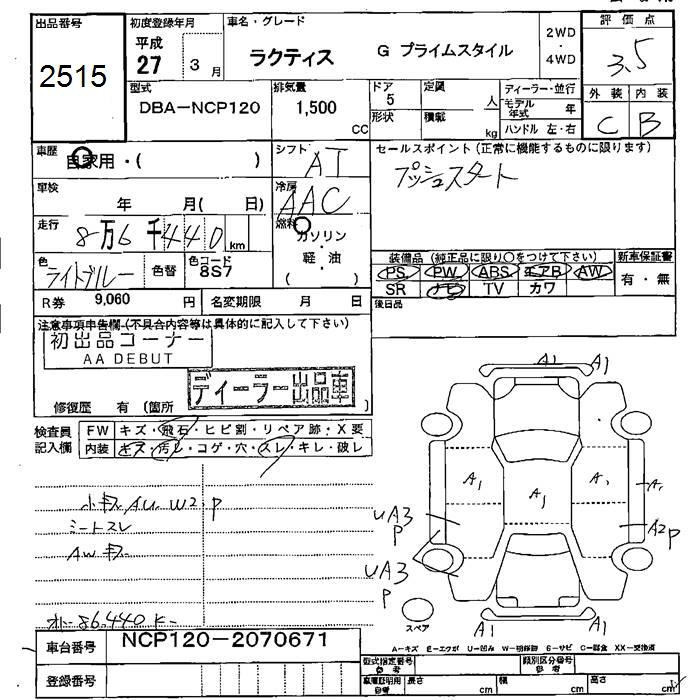 出品番号
2515
初度登録年月
平成
27 3 月
車名・グレード
ラクティス G プライムスタイル
2WD
・
4WD
評価点
3.5
型式
DBA-NCP120
排気量
1,500
CC
ドア
5
形状
定員
人
積載
kg
ディーラー・並行
モデル
年式
年
ハンドル 左・右
外装 内装
C B
車歴
自家用・( )
シフト
AT
セールスポイント(正常に機能するものに限ります)
プッシュスタート
車検
年 月( 日)
冷房
AAC
走行
8万6千440 km
燃料
ガソリン
・
軽・油
( )
色
ライトブルー
色替
色コード
8S7
装備品 (純正品に限り○をつけて下さい)
新車保証書
PS PW ABS エアB AW
SR ナビ TV カワ
有・無
R券 9,060 円
名変期限 月 日
後日品
注意事項申告欄(不具合内容等は具体的に記入して下さい)
初出品コーナー
AA DEBUT
ディーラー出品車
修復歴 有 (箇所 )
検査員
記入欄
FW キズ・飛石・ヒビ割・リペア跡・X要
内装 キズ・汚レ・コゲ・穴・スレ・キレ・破レ
小キズ, AU W2, P
シートスレ
AWキズ
オドー86,440K-
A1 A1
A1 A1 A1 A1
UA3
P
A2P
UA3
P
スペア
A1 A1
A-キズ E-エクボ U-凹み W-補修跡 S-サビ C-腐食 XX-交換済
車台番号
NCP120-2070671
登録番号
型式指定番号
参考
類別区分番号
参考
車庫証明用
参考
長さ cm
幅 cm
高さ cm